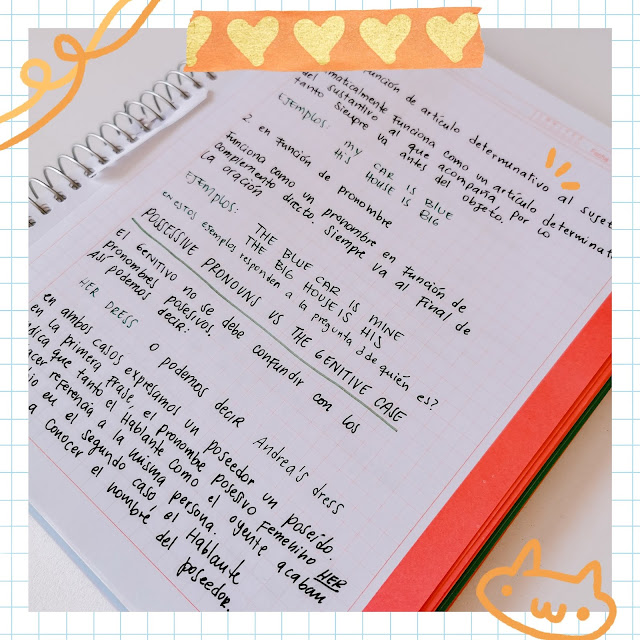 función de artículo determinativo al suje
maticalmente funciona como un artículo determinati
del sustantivo al que acompaña, por lo
tanto siempre va antes del objeto.
EJEMPLOS: MY CAR IS BLUE
HIS HOUSE IS BIG
2. en función de pronombre
Funciona como un pronombre en función de
complemento directo. Siempre va al final de
la oración
EJEMPLOS: THE BLUE CAR IS MINE
THE BIG HOUSE IS HIS
en estos ejemplos responden a la pregunta ¿de quién es?
POSSESSIVE PRONOUNS VS THE GENITIVE CASE
El GENITIVO no se debe confundir con los
pronombres posesivos.
Así podemos decir:
HER DRESS o podemos decir Andrea's dress
en ambos casos expresamos un poseedor un poseído.
en la primera frase, el pronombre posesivo femenino HER
que tanto el Hablante como el oyente acaban
referencia a la misma persona.
en el segundo caso el Hablante
a conocer el nombre del poseedor.